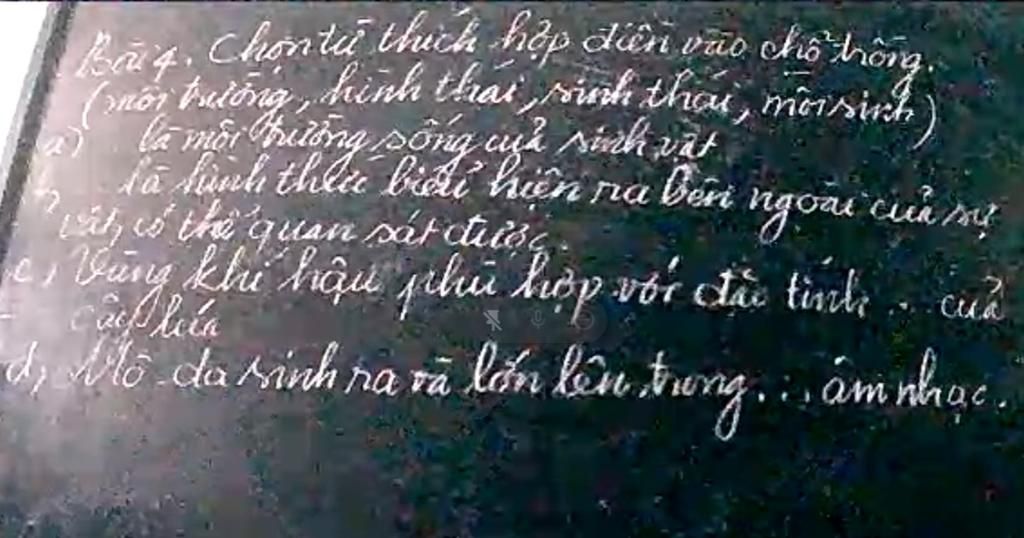 Bài 4. Chọn từ thích hợp điền vào chỗ trống.
(môi trường, hình thái, sinh thái, môi sinh)
a) ... là môi trường sống của sinh vật
b, ... là hình thức biểu hiện ra bên ngoài của sự
vật, có thể quan sát được.
c, Vùng khí hậu phù hợp với đặc tính ... của
cây lúa
d, Mô-da sinh ra và lớn lên trong ... âm nhạc.